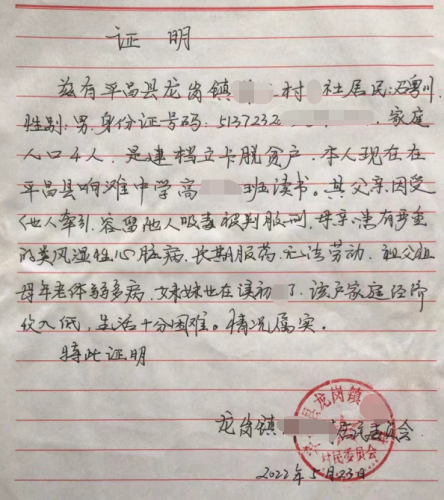 证明
兹有平昌县龙岗镇 村 社居民:
性别:男,身份证号码:5137232 家庭
人口4人,是建档立卡脱贫户,本人现在在
平昌县响滩中学高 班读书。其父亲因受
他人牵引、容留他人吸毒被判服刑,母亲患有严重
的类风湿性心脏病,长期服药,无法劳动,祖父祖
母年老体弱多病,妹妹也在读初 了,该户家庭经济
收入低,生活十分困难。情况属实。
特此证明
龙岗镇 居民委员会
2022年5月23日
县龙岗镇
村民委员会